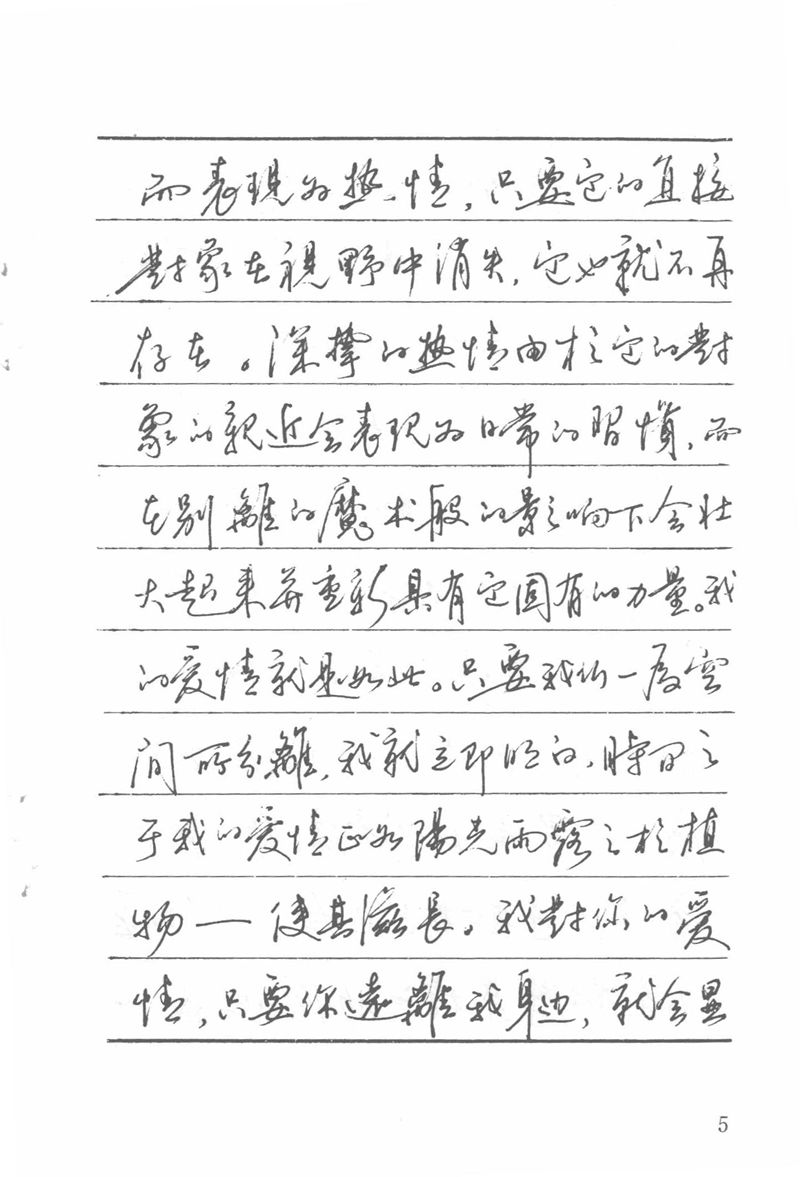 而表現为热情，只要它的直接
對象在視野中消失，它也就不再
存在。深挚的热情由於它的對
象的親近会表现为日常的習慣，而
在别離的魔术般的影响下会壮
大起来并重新具有它固有的力量。我
的爱情就是如此。只要我们一为空
间所分離，我就立即明白，時间之
于我的爱情正如陽光雨露之於植
物—使其滋長。我對你的爱
情，只要你遠離我身边，就会显
5